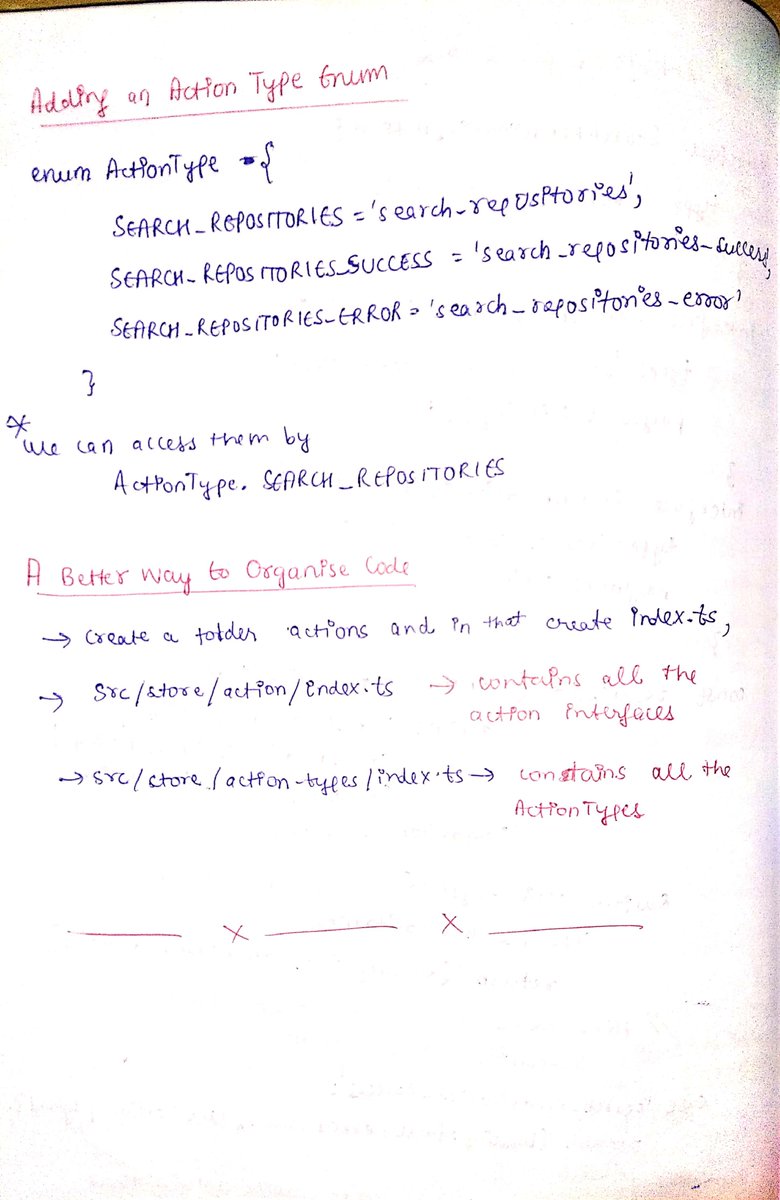 Adding an Action Type Enum
enum ActionType = {
SEARCH_REPOSITORIES = 'search_repositories',
SEARCH_REPOSITORIES_SUCCESS = 'search_repositories_success,
SEARCH_REPOSITORIES_ERROR = 'search_repositories_error'
}
* We can access them by
ActionType. SEARCH_REPOSITORIES
A Better way to Organise Code
→ Create a folder actions and in that create index.ts,
→ src/store/action/index.ts → contains all the
action interfaces
→ src/store/action-types/index.ts → constains all the
ActionTypes
x x